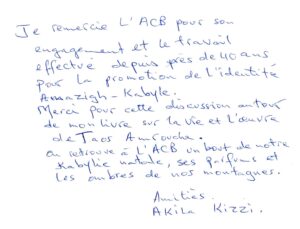 Je remercie L'ACB pour son
engagement et le travail
effectué depuis près de 40 ans
pour la promotion de l'identité
Amazigh-Kabyle.
Merci pour cette discussion autour
de mon livre sur la vie et l'œuvre
de Taos Amrouche.
On retrouve à l'ACB un bout de notre
Kabylie natale, ses parfums et
les ombres de nos montagnes.
Amitiés.
AKila Kizzi.